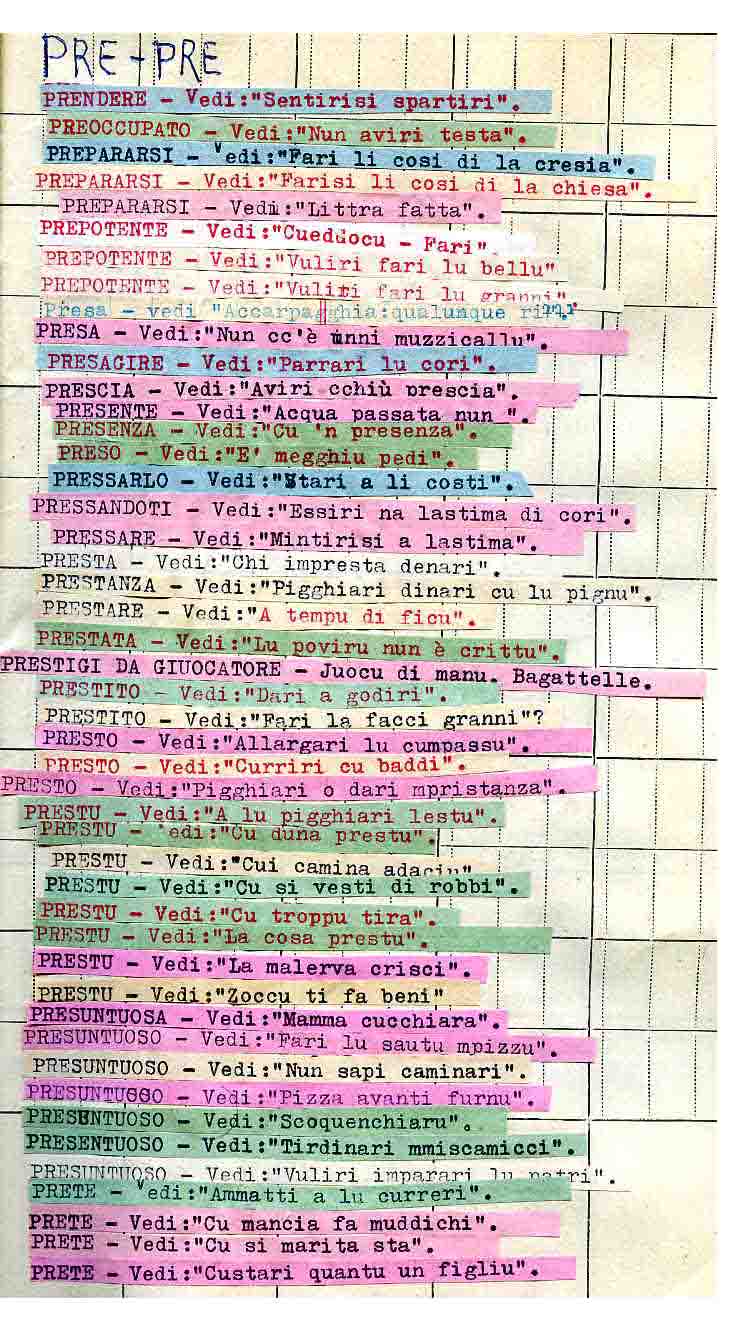 PRE-PRE
PRENDERE - Vedi:"Sentirisi spartiri".
PREOCCUPATO - Vedi:"Nun aviri testa".
PREPARARSI - Vedi:"Fari li cosi di la cresia".
PREPARARSI - Vedi:"Farisi li cosi di la chiesa".
PREPARARSI - Vedi:"Littra fatta".
PREPOTENTE - Vedi:"Cueddocu - Fari"
PREPOTENTE - Vedi:"Vuliri fari lu bellu"
PREPOTENTE - Vedi:"Vuliri fari lu granni"
Presa - vedi "Accarpagghia:qualunque
PRESA - Vedi:"Nun cc'è nnni muzzicallu".
PRESAGIRE - Vedi:"Parrari lu cori".
PRESCIA - Vedi:"Aviri cchiù prescia".
PRESENTE - Vedi:"Acqua passata nun ".
PRESENZA - Vedi:"Cu 'n presenza".
PRESO - Vedi:"E' megghiu pedi".
PRESSARLO - Vedi:"Stari a li costi".
PRESSANDOTI - Vedi:"Essiri na lastima di cori".
PRESSARE - Vedi:"Mintirisi a lastima".
PRESTA - Vedi:"Chi impresta denari".
PRESTANZA - Vedi:"Pigghiari dinari cu lu pignu".
PRESTARE - Vedi:"A tempu di ficu".
PRESTATA - Vedi:"Lu poviru nun è crittu".
PRESTIGI DA GIUOCATORE - Juocu di manu. Bagattelle.
PRESTITO - Vedi:"Dari a godiri".
PRESTITO - Vedi:"Fari la facci granni"?
PRESTO - Vedi:"Allargari lu cumpassu".
PRESTO - Vedi:"Curriri cu baddi".
PRESTO - Vedi:"Pigghiari o dari mpristanza".
PRESTU - Vedi:"A lu pigghiari lestu".
PRESTU - Vedi:"Cu duna prestu".
PRESTU - Vedi:"Cui camina adaciu"
PRESTU - Vedi:"Cu si vesti di robbi".
PRESTU - Vedi:"Cu troppu tira".
PRESTU - Vedi:"La cosa prestu".
PRESTU - Vedi:"La malerva crisci".
PRESTU - Vedi:"Zoccu ti fa beni"
PRESUNTUOSA - Vedi:"Mamma cucchiara".
PRESUNTUOSO - Vedi:"Fari lu sautu mpizzu".
PRESUNTUOSO - Vedi:"Nun sapi caminari".
PRESUNTUOSO - Vedi:"Pizza avanti furnu".
PRESUNTUOSO - Vedi:"Scoquenchiaru".
PRESENTUOSO - Vedi:"Tirdinari mmiscamicci".
PRESUNTUOSO - Vedi:"Vuliri imparari lu patri".
PRETE - Vedi:"Ammatti a lu curreri".
PRETE - Vedi:"Cu mancia fa muddichi".
PRETE - Vedi:"Cu si marita sta".
PRETE - Vedi:"Custari quantu un figliu".